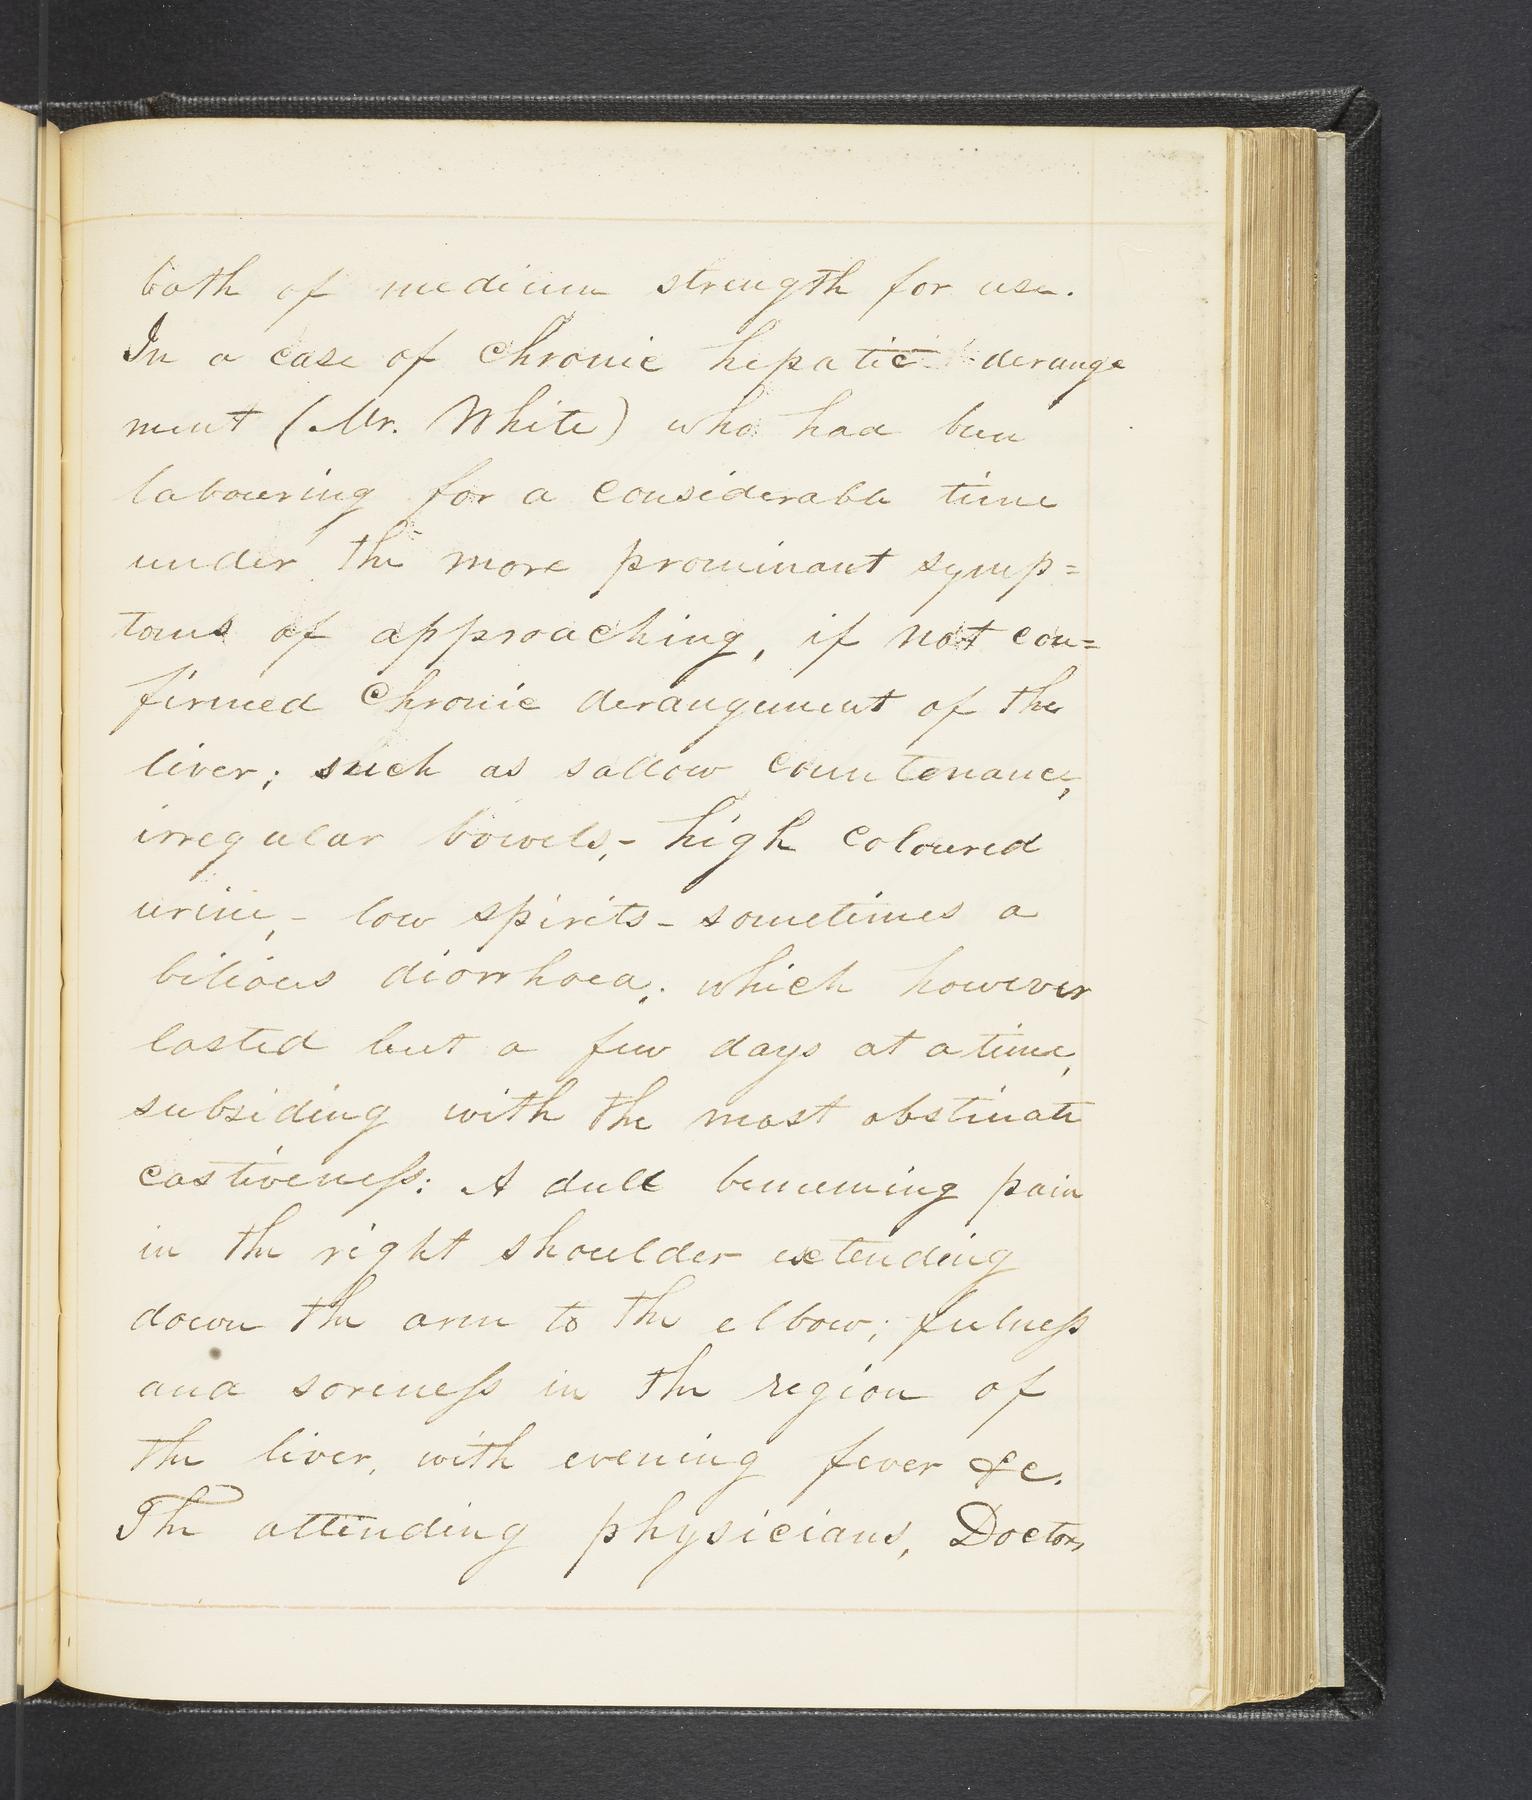 both of medium strength for use.
In a case of Chronic hepatic derange
ment (Mr. White) who had been
labouring for a considerable time
under the more prominant symp=
toms of approaching, if not con=
firmed Chronic derangement of the
liver; such as sallow countenance,
irregular bowels,- high coloured
urine, - low spirits - sometimes a
bilious diorrhoea; which however
lasted but a few days at a time,
subsiding with the most obstinate
costiveness: A dull benuming pain
in the right shoulder extending
down the arm to the elbow; fulness
and soreness in the region of
the liver, with evening fever &c.
The attending physicians, Doctors